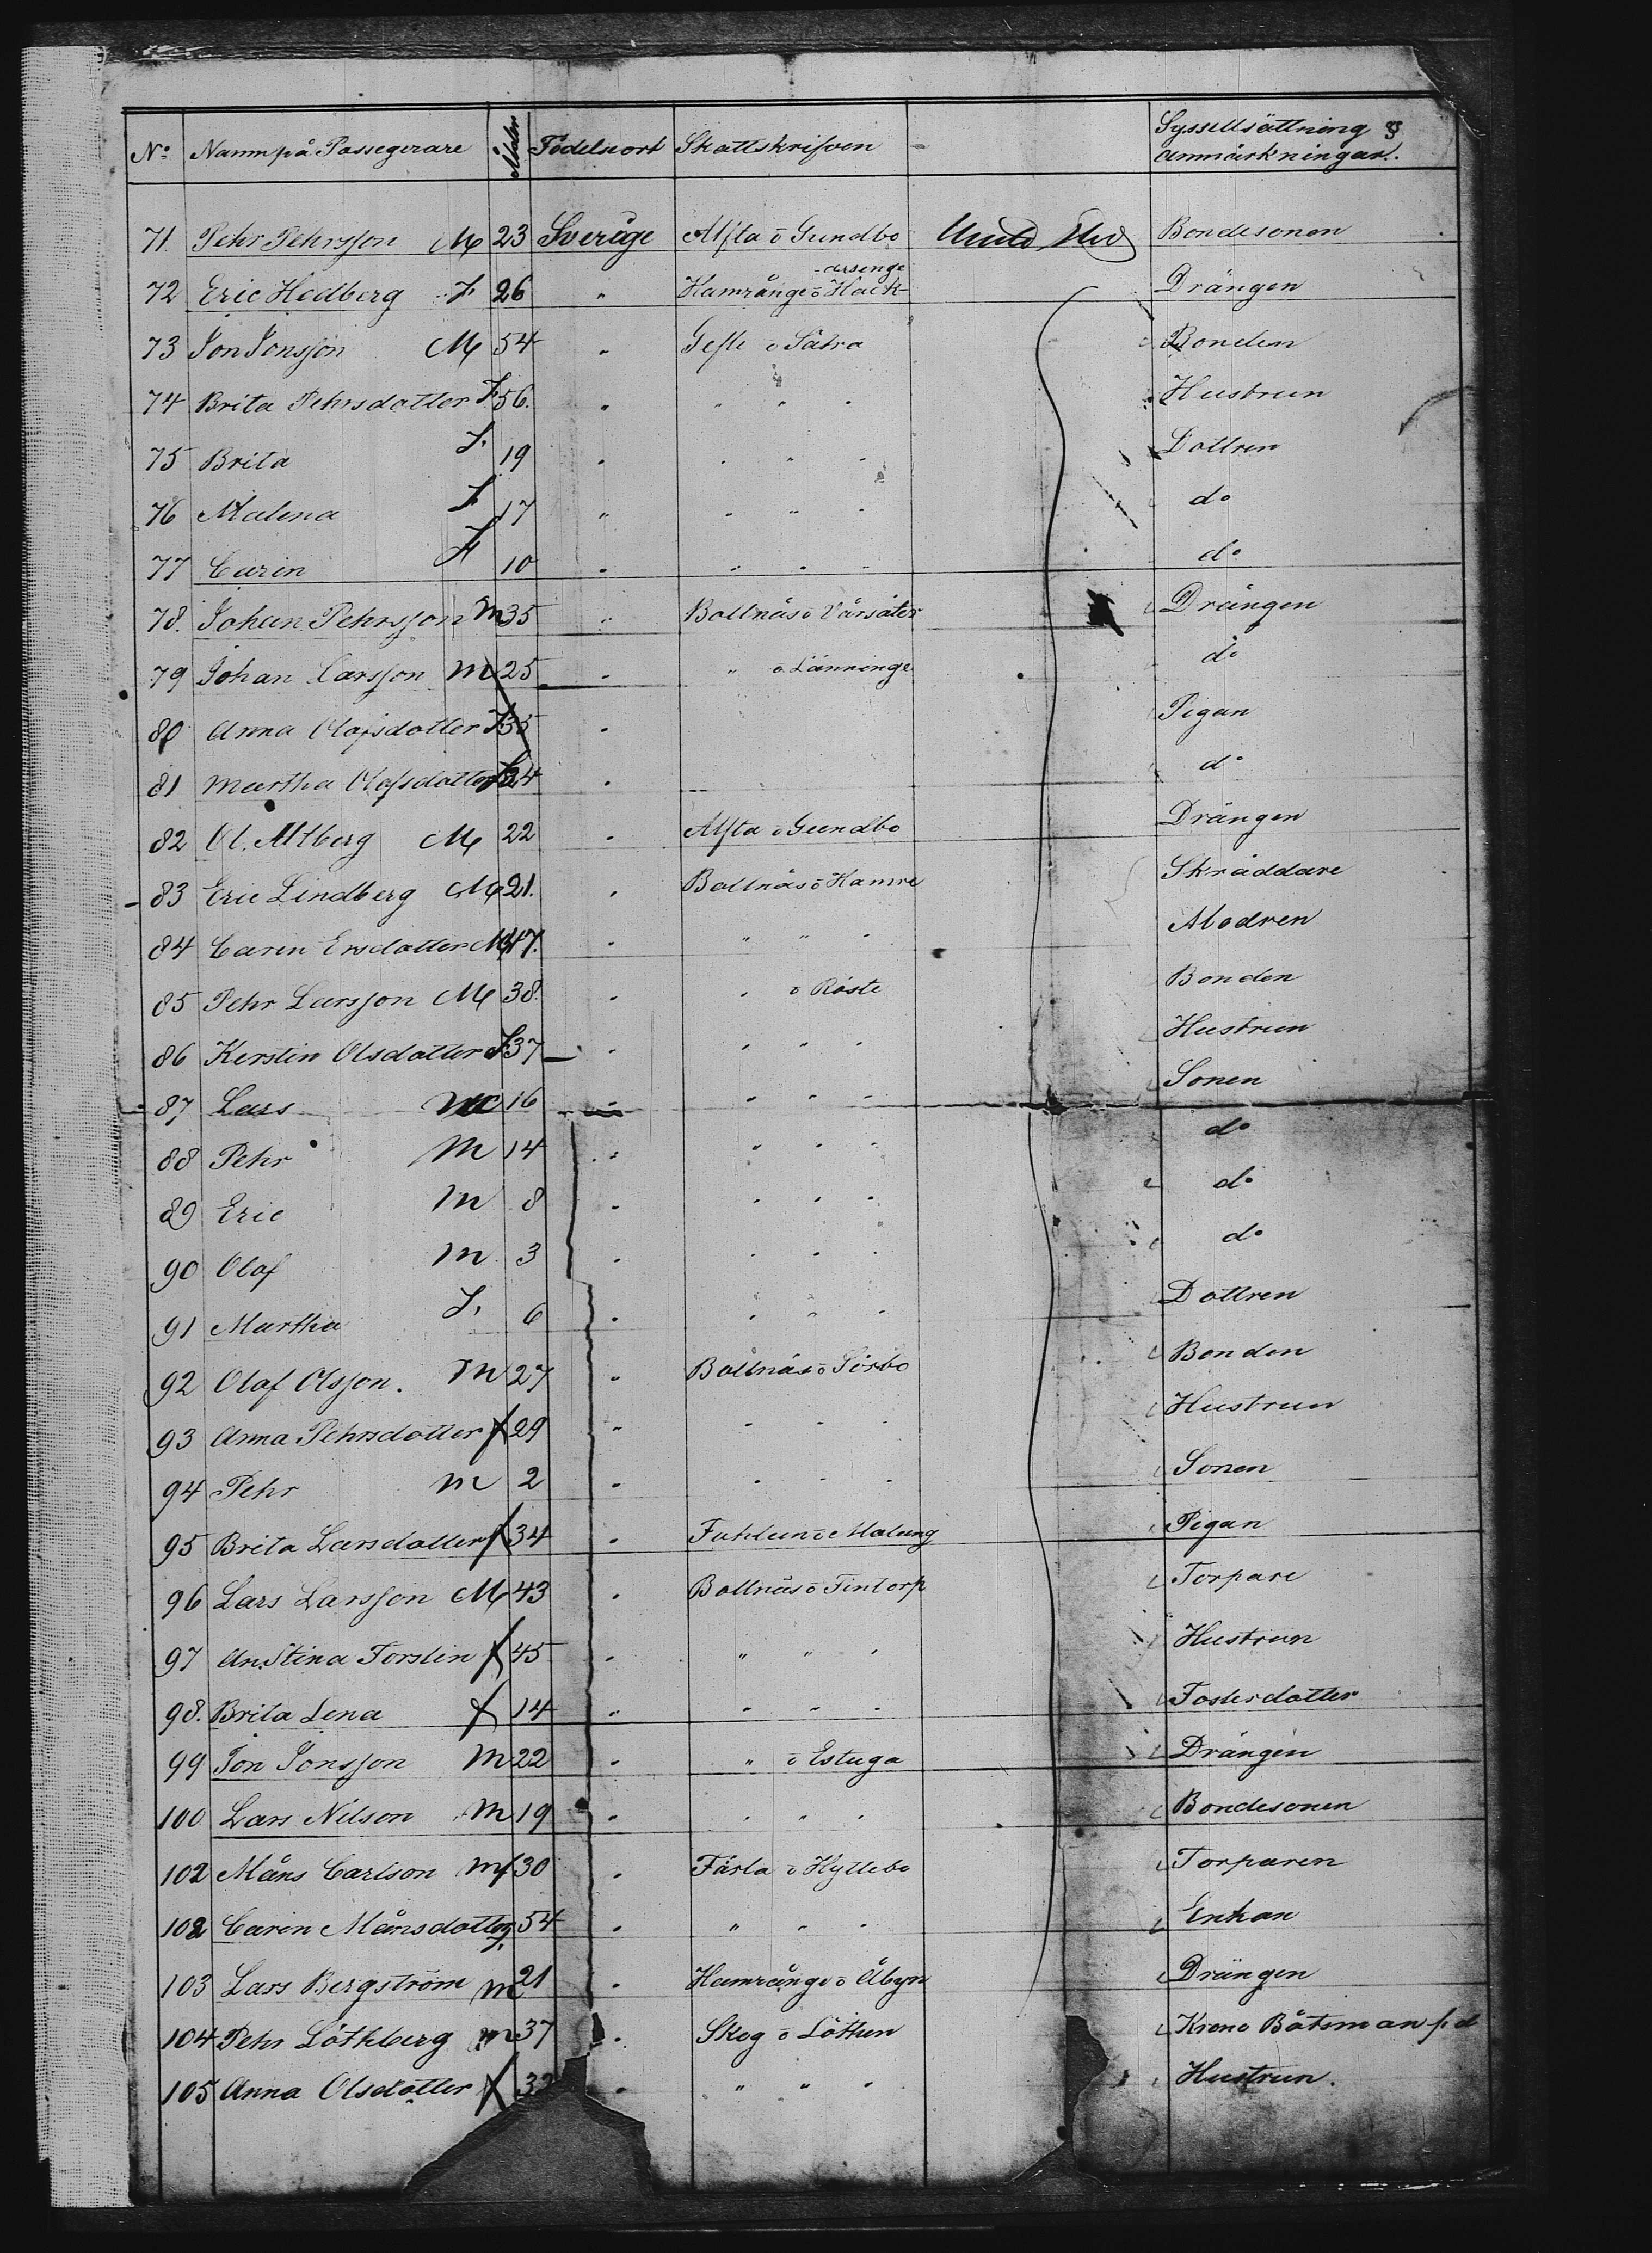 No Namn på Passegerare Ålder Födelseort Skattskrifven Sysselsättning & anmärkningar.
71. Pehr Pehrsson M 23 Sverige Alfta ö Gundbo Bondesonen
72 Eric Hedberg F 26 " Hamrånge ö Hack-arsenge Drängen
73 Jon Jonsson M 54 " Gefle ö Sätra Bonden
74 Brita Pehrsdotter F. 56. " " " " Hustrun
75 Brita F. 19 " " " " Dottren
76 Malena F 17 " " " " do
77 Carin F 10 " " " " do
78. Johan Pehrsson M 35 " Bollnäs ö Vårsäter Drängen
79 Johan Carsson M 25 " " ö Länninge do
80 Anna Olofsdotter F 35 " Pigan
81 Martha Olofsdotter F 24 " do
82 Ol. Altberg M 22 " Alfta ö Gundbo Drängen
83 Eric Lindberg M 21. " Bollnäs ö Hamre Skräddare
84 Caren Ersdotter M 47. " " " " Modren
85 Pehr Larsson M 38. " " ö Röste Bonden
86 Kerstin Olsdotter F 37 " " " " Hustrun
87 Lars M 16 " " " " Sonen
88 Pehr M 14 " " " " do
89 Eric M 8 " " " " do
90 Olof M 3 " " " " do
91 Martha F. 6 " " " " Dottren
92 Olof Olsson. M 27 " Bollnäs ö Sörbo Bonden
93 Anna Pehrsdotter f 29 " " " " Hustrun
94 Pehr M 2 " " " " Sonen
95 Brita Larsdotter f 34 " Fahlun ö Malung Pigan
96 Lars Larsson M 43 " Bollnäs ö Fintorp Torpare
97 An. Stina Forslin f 45 " " " " Hustrun
98. Brita Lena f 14 " " " " Fosterdotter
99 Jon Jonsson M 22 " " ö Estuga Drängen
100 Lars Nilson M 19 " " " " Bondesonen
102 Måns Carlson M 30 " Färla ö Hyttebo Torparen
102 Carin Månsdotter f. 54 " " " " Enkan
103 Lars Bergström M 21 " Hamrånge ö Åbyn Drängen
104 Pehr Löthberg M 37 " Skog ö Löthen Krono Båtsman f.d
105 Anna Olsdotter f " " " " Hustrun.